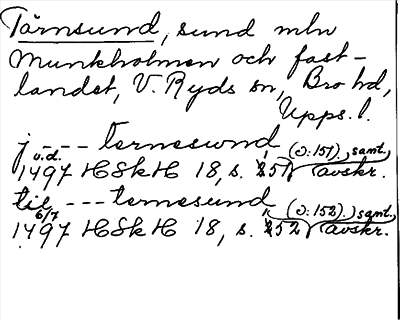 Tärnsund, sund mln
Munkholmen och fast-
landet, V. Ryds sn, Bro hd,
Upps. l.
j --- ternesund (o: 151), samt.
u.d.
1497 HSkH 18, s. 151 avskr.
till --- ternesund (o: 152), samt.
6/7
1497 HSkH 18, s. 152 avskr.